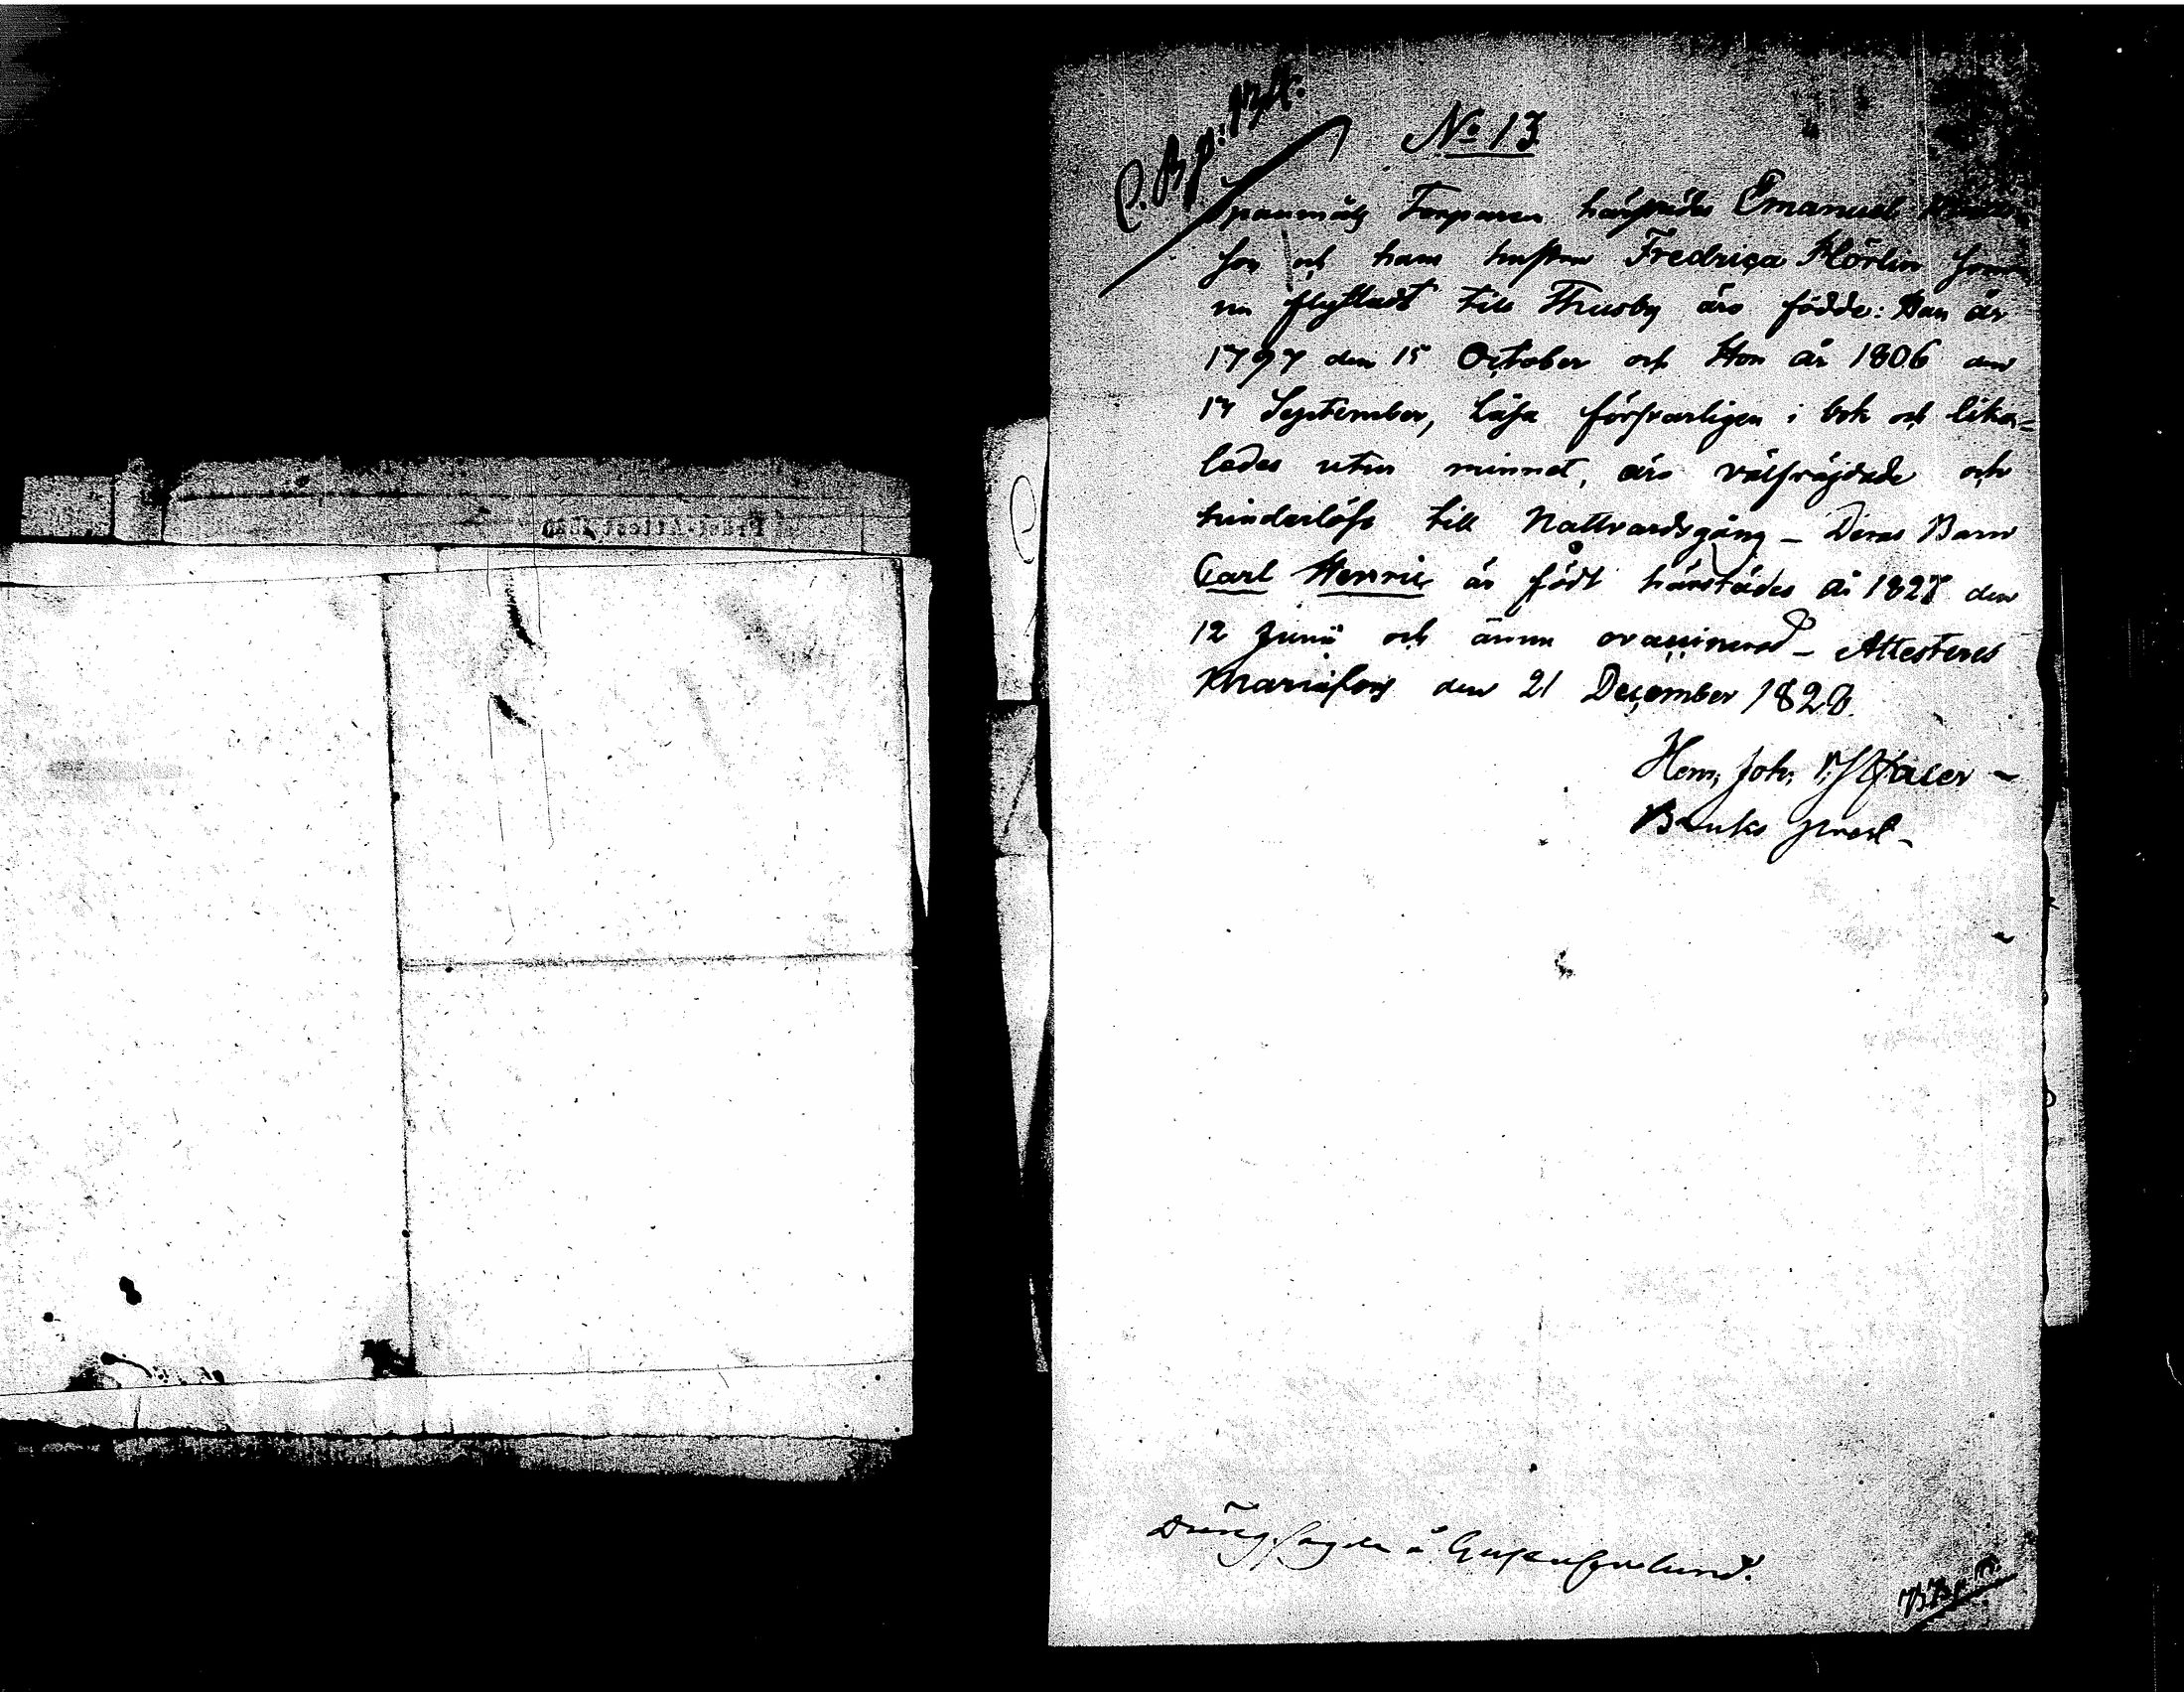 No 13
Spanmålz Torparen härstädes Emanuel
son och hans hustru Fredrica Hörlin som
nu flyttadt till Thusby äro födde: Han år
1797 den 15 October och Hon år 1806 den
17 September, Läsa försvarligen i bok och lika-
ledes utur minnet, äro välfrägdade och
hinderlöse till Nattvardsgång – Deras Barn
Carl Henric är född härstädes år 1827 den
12 Junii och ännu ovaccinerad – Attesteras
Mariæfors den 21 December 1828.
Henr. Joh.
Bruks Pred.
Dräng å